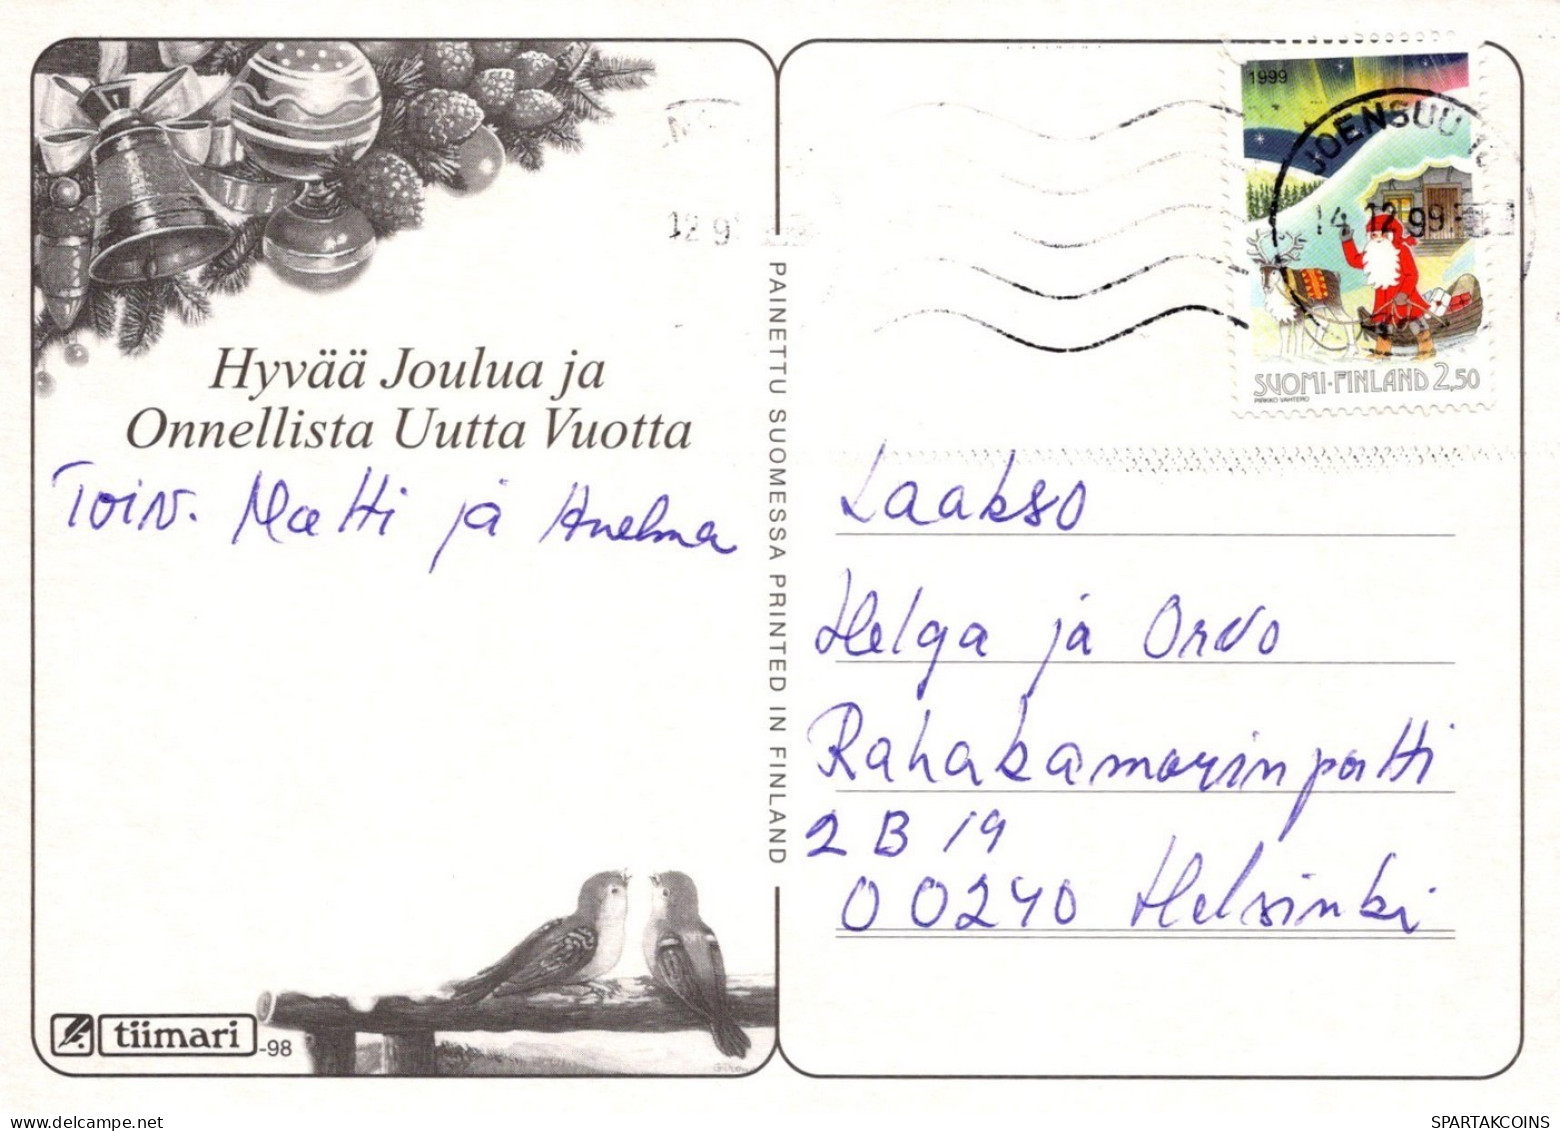 Hyvää Joulua ja
Onnellista Uutta Vuotta
Toiv. Matti ja Anelma
tiimari -98
PAINETTU SUOMESSA PRINTED IN FINLAND
1999
JOENSUU
14.12.99
SUOMI-FINLAND 2,50
PIRKKO VAHTERO
12 9
Laakso
Helga ja Orvo
Rahakamarinportti
2 B 19
00240 Helsinki
SPARTAKCOINS